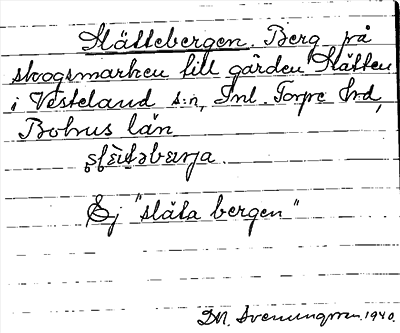 Slättebergen. Berg på
skogsmarken till gården Slätten
i Västerland s:n, Inl. Torpe hrd,
Bohus län

Ej "släta bergen"
DM. Svenungsson. 1940.